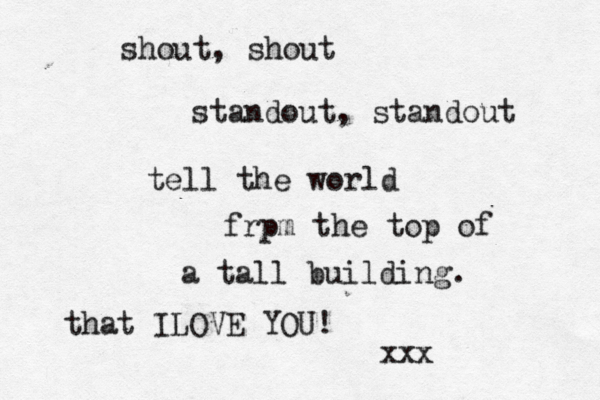 shout, shout
standout, standout
tell the world
frpm the top of
a tall building.
that ILOVE YOU!
xxx